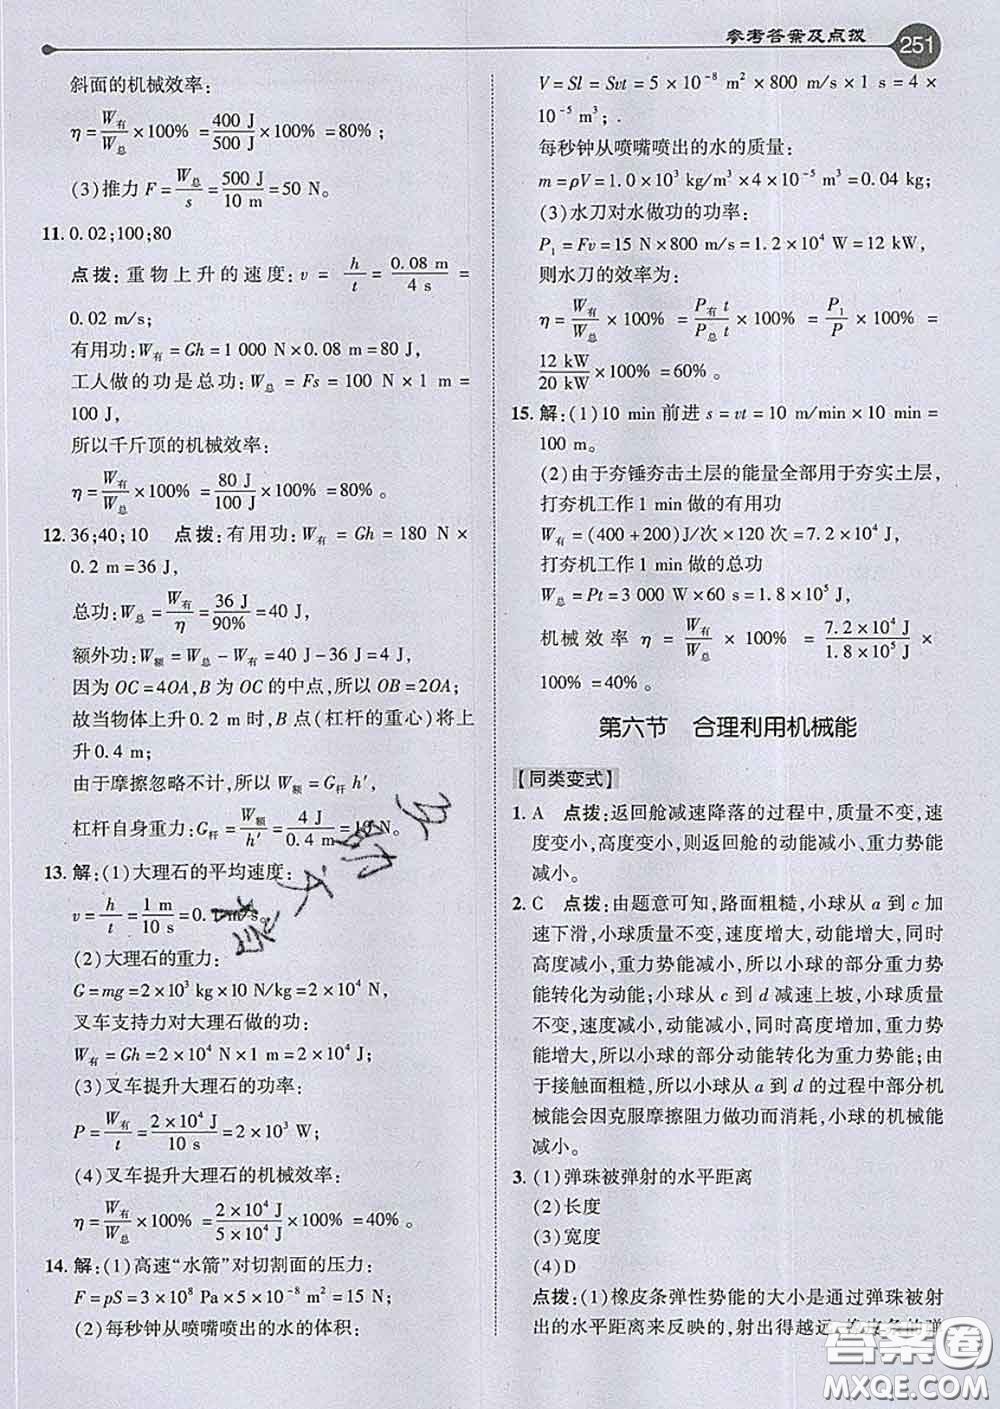 参考答案及点拨 251
斜面的机械效率：
η = W有/W总 × 100% = 400 J/500 J × 100% = 80%；
(3)推力 F = W总/s = 500 J/10 m = 50 N。
11. 0.02；100；80
点拨：重物上升的速度：v = h/t = 0.08 m/4 s =
0.02 m/s；
有用功：W有 = Gh = 1 000 N×0.08 m = 80 J，
工人做的功是总功：W总 = Fs = 100 N×1 m =
100 J，
所以千斤顶的机械效率：
η = W有/W总 × 100% = 80 J/100 J × 100% = 80%。
12. 36；40；10 点拨：有用功：W有 = Gh = 180 N×
0.2 m = 36 J，
总功：W总 = W有/η = 36 J/90% = 40 J，
额外功：W额 = W总 − W有 = 40 J − 36 J = 4 J；
因为 OC = 4OA，B 为 OC 的中点，所以 OB = 2OA；
故当物体上升0.2 m时，B点(杠杆的重心)将上
升0.4 m；
由于摩擦忽略不计，所以W额 = G杆 h′，
杠杆自身重力：G杆 = W额/h′ = 4 J/0.4 m = 10 N。
13. 解：(1)大理石的平均速度：
v = h/t = 1 m/10 s = 0.1 m/s。
(2)大理石的重力：
G = mg = 2×10³ kg×10 N/kg = 2×10⁴ N，
叉车支持力对大理石做的功：
W有 = Gh = 2×10⁴ N×1 m = 2×10⁴ J；
(3)叉车提升大理石的功率：
P = W有/t = 2×10⁴ J/10 s = 2×10³ W；
(4)叉车提升大理石的机械效率：
η = W有/W总 × 100% = 2×10⁴ J/5×10⁴ J × 100% = 40%。
14. 解：(1)高速“水箭”对切割面的压力：
F = pS = 3×10⁸ Pa×5×10⁻⁸ m² = 15 N；
(2)每秒钟从喷嘴喷出的水的体积：
V = Sl = Svt = 5×10⁻⁸ m²×800 m/s×1 s = 4×
10⁻⁵ m³；
每秒钟从喷嘴喷出的水的质量：
m = ρV = 1.0×10³ kg/m³×4×10⁻⁵ m³ = 0.04 kg；
(3)水刀对水做功的功率：
P₁ = Fv = 15 N×800 m/s = 1.2×10⁴ W = 12 kW，
则水刀的效率为：
η = W有/W总 × 100% = P有 t/P总 t × 100% = P₁/P × 100% =
12 kW/20 kW × 100% = 60%。
15. 解：(1)10 min前进 s = vt = 10 m/min×10 min =
100 m。
(2)由于夯锤夯击土层的能量全部用于夯实土层，
打夯机工作1 min做的有用功
W有 = (400+200)J/次×120次 = 7.2×10⁴ J，
打夯机工作1 min做的总功
W总 = Pt = 3 000 W×60 s = 1.8×10⁵ J，
机械效率 η = W有/W总 × 100% = 7.2×10⁴ J/1.8×10⁵ J ×
100% = 40%。
第六节 合理利用机械能
【同类变式】
1. A 点拨：返回舱减速降落的过程中，质量不变，速
度变小，高度变小，则返回舱的动能减小、重力势能
减小。
2. C 点拨：由题意可知，路面粗糙，小球从 a 到 c 加
速下滑，小球质量不变，速度增大，动能增大，同时
高度减小，重力势能减小，所以小球的部分重力势
能转化为动能；小球从 c 到 d 减速上坡，小球质量
不变，速度减小，动能减小，同时高度增加，重力势
能增大，所以小球的部分动能转化为重力势能；由
于接触面粗糙，所以小球从 a 到 d 的过程中部分机
械能会因克服摩擦阻力做功而消耗，小球的机械能
减小。
3. (1)弹珠被弹射的水平距离
(2)长度
(3)宽度
(4)D
点拨：(1)橡皮条弹性势能的大小是通过弹珠被射
出的水平距离来反映的，射出得越远，橡皮条的弹
答案圈
MXQE.COM